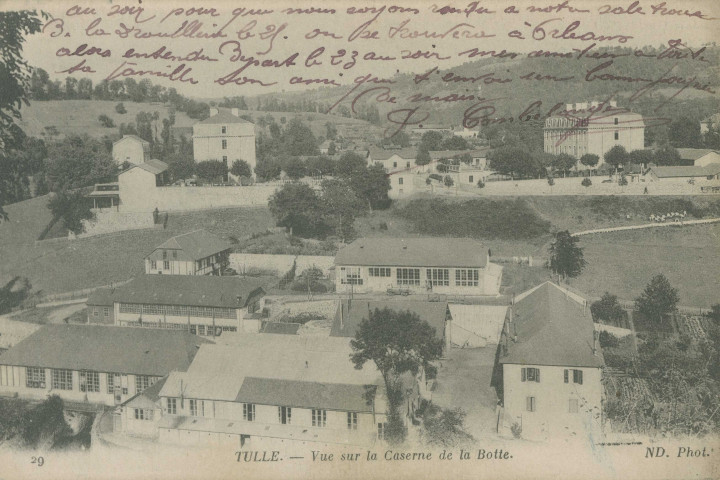 au soir pour que nous soyons rendu a notre salle trouve
de la Trouillère le 25. on se trouvera à Orléans
alors entendu Départ le 23 au soir mes amitiés a toute
ta famille ton ami qui t'envoie une bonne poignée
de main
29
TULLE. — Vue sur la Caserne de la Botte.
ND. Phot.